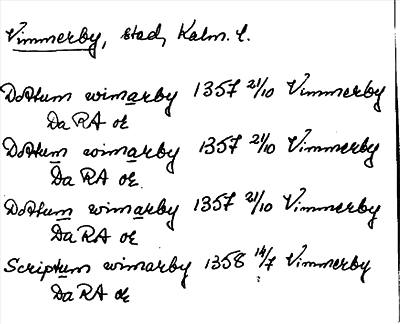 Vimmerby, stad, Kalm. l.
Dattum wimarby 1357 21/10 Vimmerby
Da RA or
Dattum wimarby 1357 21/10 Vimmerby
Da RA or.
Dattum wimarby 1357 21/10 Vimmerby
Da RA or
Scriptum wimarby 1358 14/7 Vimmerby
Da RA or